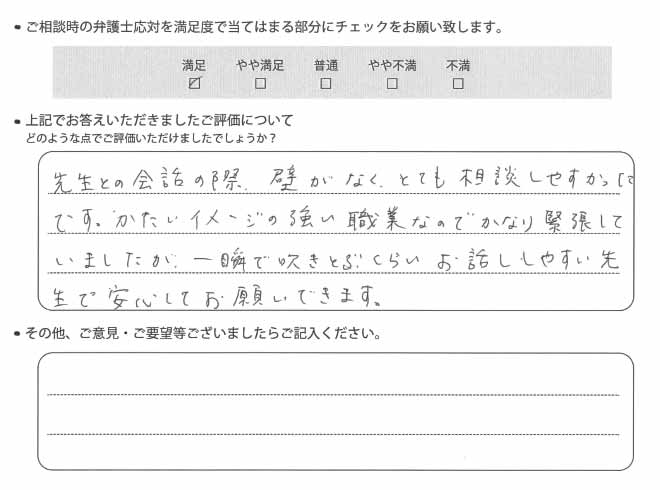 • ご相談時の弁護士応対を満足度で当てはまる部分にチェックをお願い致します。
満足 やや満足 普通 やや不満 不満
☑ □ □ □ □
• 上記でお答えいただきましたご評価について
どのような点でご評価いただけましたでしょうか？
先生との会話の際、壁がなく、とても相談しやすかった
です。かたいイメージの強い職業なのでかなり緊張して
いましたが、一瞬で吹きとぶくらいお話ししやすい先
生で安心してお願いできます。
• その他、ご意見・ご要望等ございましたらご記入ください。